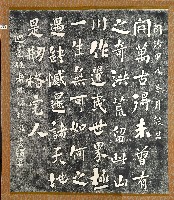 開萬古得未曾有
之奇洪荒留此山
川作遺民世界極
一生無可如何之
遇缺憾還諸天地
是刱格完人